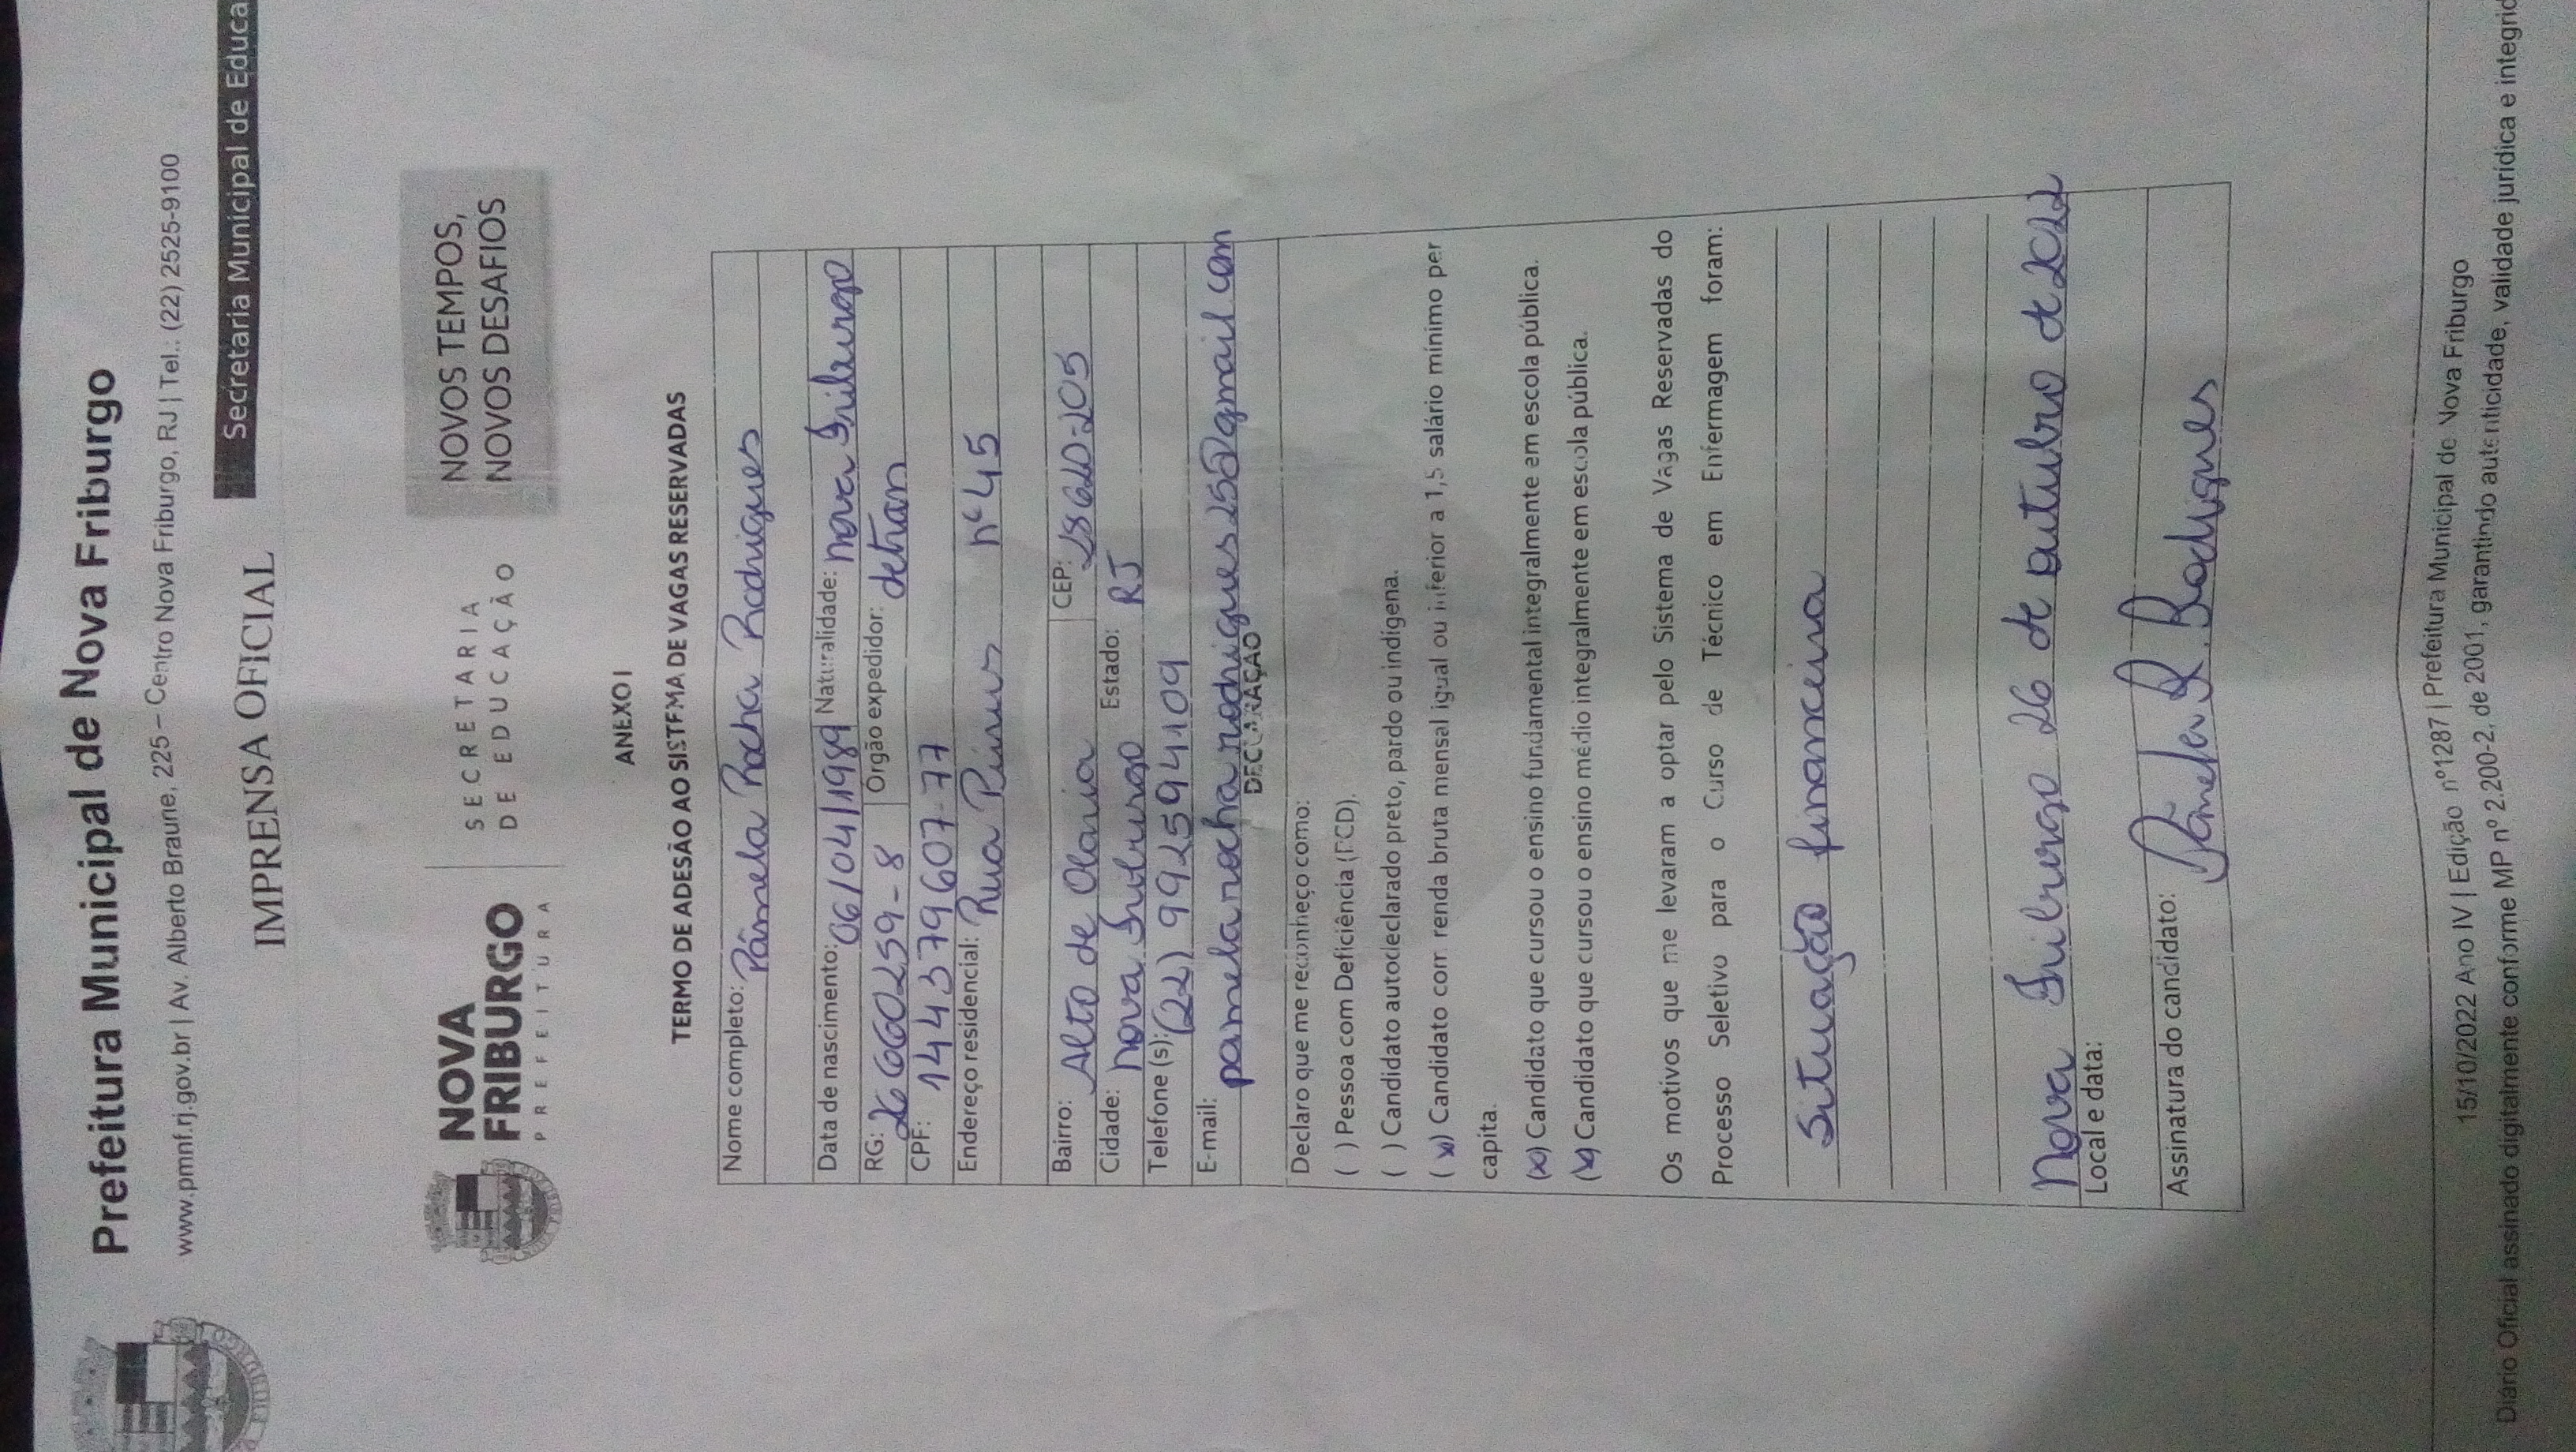 Prefeitura Municipal de Nova Friburgo
www.pmnf.rj.gov.br | Av. Alberto Braune, 225 – Centro Nova Friburgo, RJ | Tel.: (22) 2525-9100
IMPRENSA OFICIAL
Secretaria Municipal de Educa
NOVA FRIBURGO
PREFEITURA
SECRETARIA
DE EDUCAÇÃO
NOVOS TEMPOS,
NOVOS DESAFIOS
ANEXO I
TERMO DE ADESÃO AO SISTEMA DE VAGAS RESERVADAS
Nome completo: Pâmela Rocha Rodrigues
Data de nascimento: 06/04/1989 Naturalidade: nova Friburgo
RG: 26660259-8 Orgão expedidor: detran
CPF: 144379607-77
Endereço residencial: Rua Pinus nº 45
Bairro: Alto de Olaria CEP: 28620-205
Cidade: nova Friburgo Estado: RJ
Telefone (s): (22) 992594109
E-mail: pamelarocharodrigues25@gmail.com
DECLARAÇÃO
Declaro que me reconheço como:
( ) Pessoa com Deficiência (PCD).
( ) Candidato autodeclarado preto, pardo ou indígena.
(x) Candidato com renda bruta mensal igual ou inferior a 1,5 salário mínimo per
capita.
(x) Candidato que cursou o ensino fundamental integralmente em escola pública.
(x) Candidato que cursou o ensino médio integralmente em escola pública.
Os motivos que me levaram a optar pelo Sistema de Vagas Reservadas do
Processo Seletivo para o Curso de Técnico em Enfermagem foram:
Situação financeira
Nova Friburgo 26 de outubro de 2022
Local e data:
Assinatura do candidato: Pâmela R. Rodrigues
15/10/2022 Ano IV | Edição nº1287 | Prefeitura Municipal de Nova Friburgo
Diário Oficial assinado digitalmente conforme MP nº 2.200-2, de 2001, garantindo autenticidade, validade jurídica e integrid